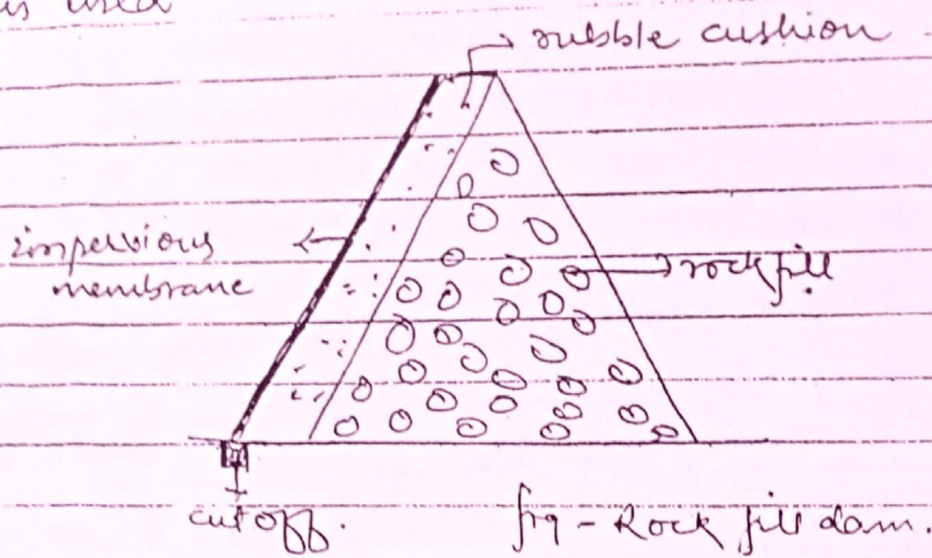 is used
rubble cushion
impervious
membrane
rockfill
cut off.
fig - Rock fill dam.